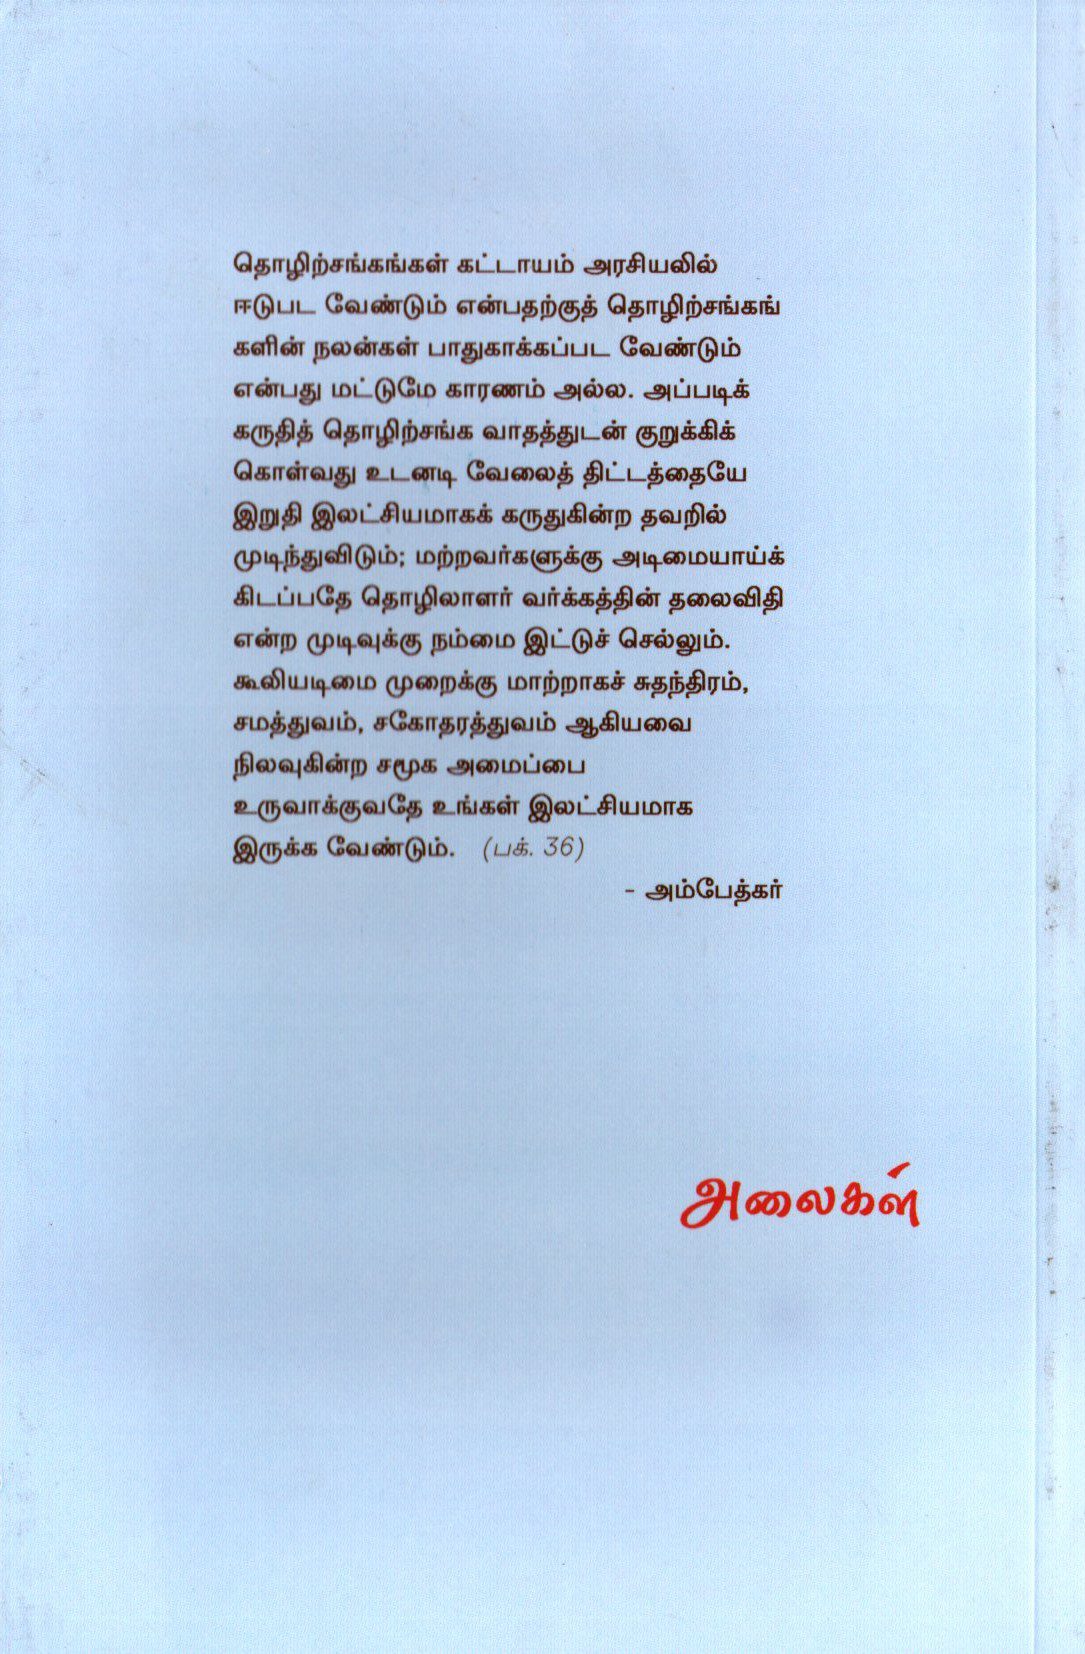 தொழிற்சங்கங்கள் கட்டாயம் அரசியலில்
ஈடுபட வேண்டும் என்பதற்குத் தொழிற்சங்கங்
களின் நலன்கள் பாதுகாக்கப்பட வேண்டும்
என்பது மட்டுமே காரணம் அல்ல. அப்படிக்
கருதித் தொழிற்சங்க வாதத்துடன் குறுக்கிக்
கொள்வது உடனடி வேலைத் திட்டத்தையே
இறுதி இலட்சியமாகக் கருதுகின்ற தவறில்
முடிந்துவிடும்; மற்றவர்களுக்கு அடிமையாய்க்
கிடப்பதே தொழிலாளர் வர்க்கத்தின் தலைவிதி
என்ற முடிவுக்கு நம்மை இட்டுச் செல்லும்.
கூலியடிமை முறைக்கு மாற்றாகச் சுதந்திரம்,
சமத்துவம், சகோதரத்துவம் ஆகியவை
நிலவுகின்ற சமூக அமைப்பை
உருவாக்குவதே உங்கள் இலட்சியமாக
இருக்க வேண்டும். (பக். 36)
- அம்பேத்கர்
அலைகள்